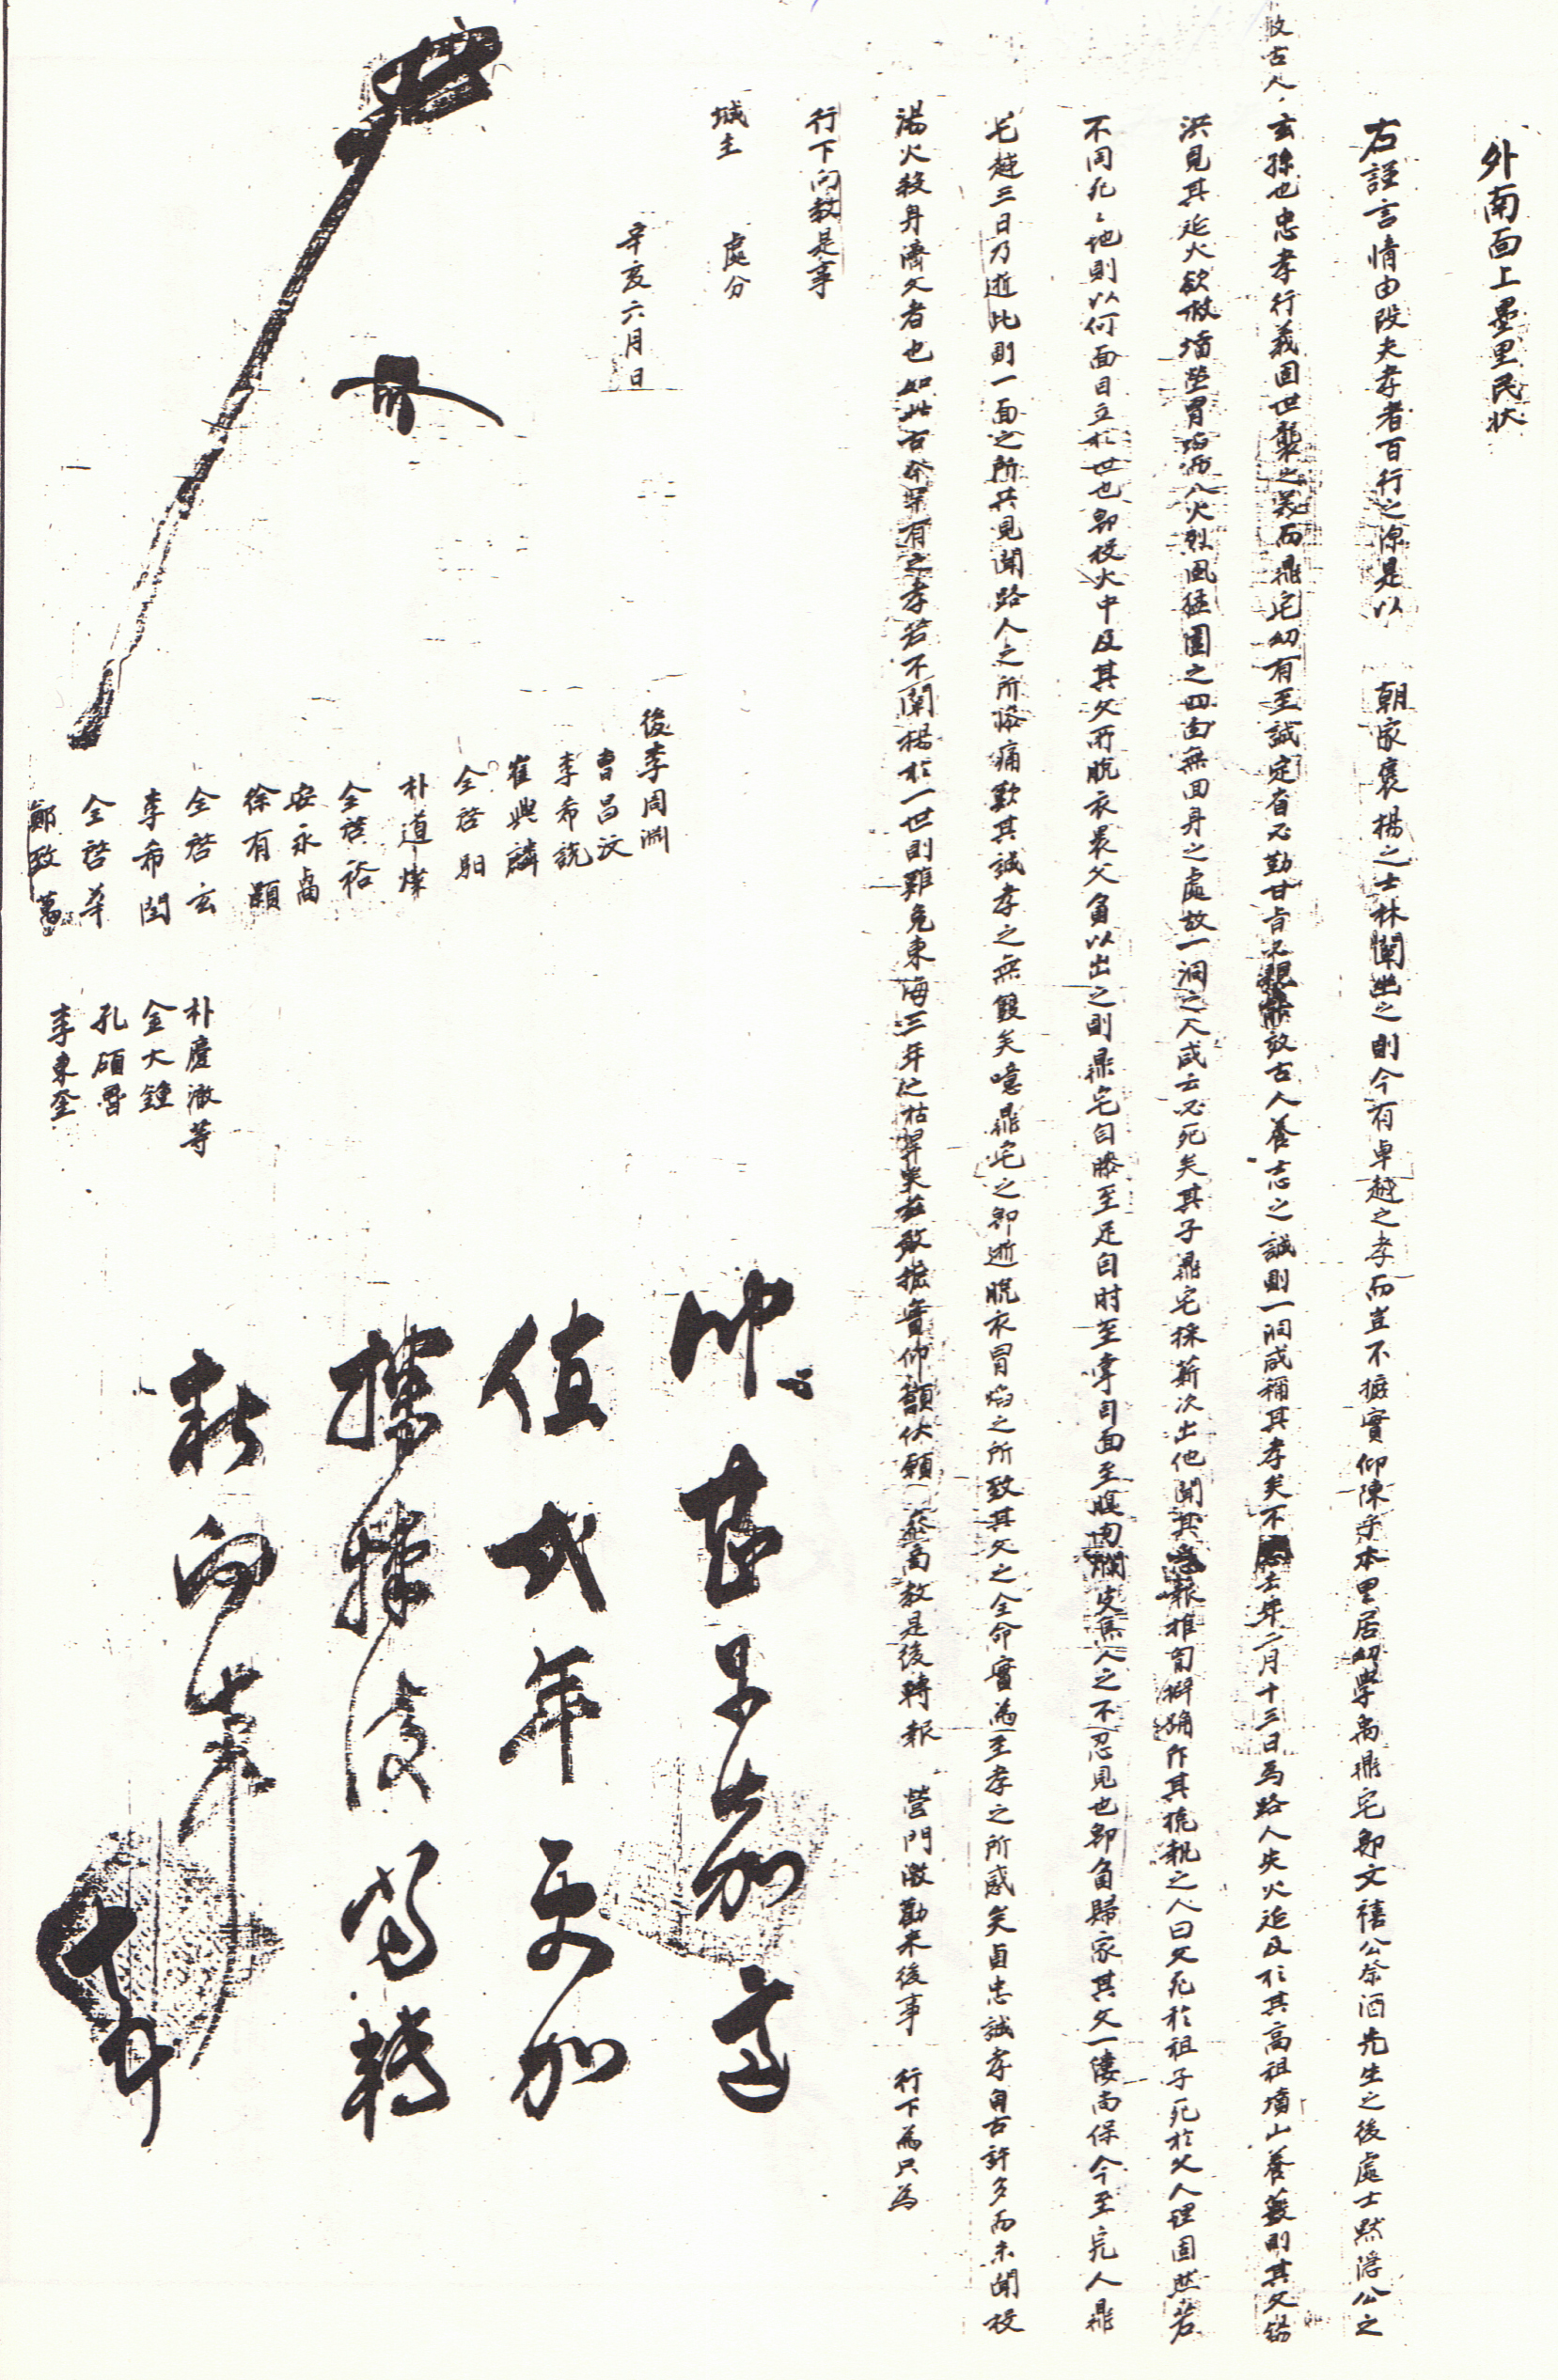 外南面上墨里民狀
右謹言情由段夫孝者百行之源是以 朝家褒揚之士林闡幽之則今有卓越之孝而豈不據實仰陳乎本里居幼學禹鼎宅卽文禧公祭酒先生之後處士默隱公之
玄孫也忠孝行義固世襲之業而鼎宅幼有至誠定省必勤甘旨必親能效古人養志之誠則一洞咸稱其孝矣不意去年二月十三日爲路人失火延及於其高祖墳山養藪則其父錫
洪見其延火欲救墻塋冒焰而入火烈風猛圍之四面無回身之處故一洞之人咸云必死矣其子鼎宅採薪次出他聞其急報推胸擗踊作其挽執之人曰父死於祖子死於父人理固然若
不同死之地則以何面目立於世也卽投火中及其父所脫衣裹父負以出之則鼎宅自膝至足自肘至掌自面至腹肉爛皮焦人之不忍見也卽負歸家其父一縷尙保今至完人鼎
宅越三日乃逝此則一面之所共見聞路人之所慘痛歎其誠孝之無雙矣噫鼎宅之卽逝脫衣冒焰之所致其父之全命實爲至孝之所感矣貞忠誠孝自古許多而未聞投
湯火殺身濟父者也如此古今罕有之孝若不闡揚於一世則難免東海三年之枯旱矣玆敢據實仰籲伏願 參商敎是後轉報 營門激勸來後事 行下爲只爲
行下向敎是事
城主 處分
辛亥六月日
後李周淵
曹昌汶
李希說
崔興麟
全啓馹
朴道燦
全啓裕
安永卨
徐有顯
全啓玄
李希閏
全啓華
鄭致萬
朴慶澈等
金大鍾
孔碩曆
李東奎
甚是嘉
値式年更加
採後當轉
報向事